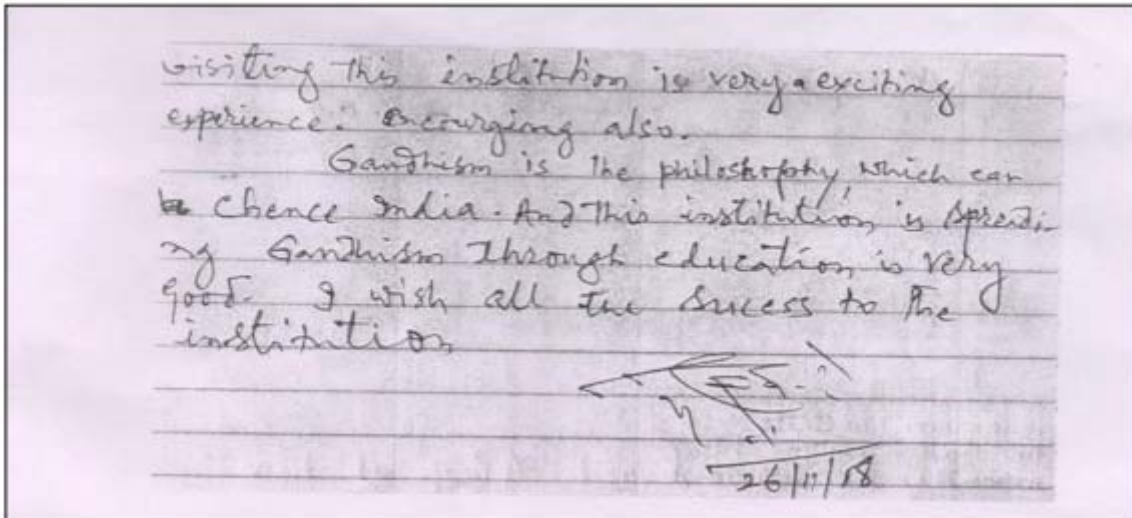 visiting this institution is very a exciting
experience. encourging also.
Gandhism is the philoshophy, which can
Chence India. And this institution is spreadi-
ng Gandhism through education is very
good. I wish all the sucess to the
institution
26/11/18